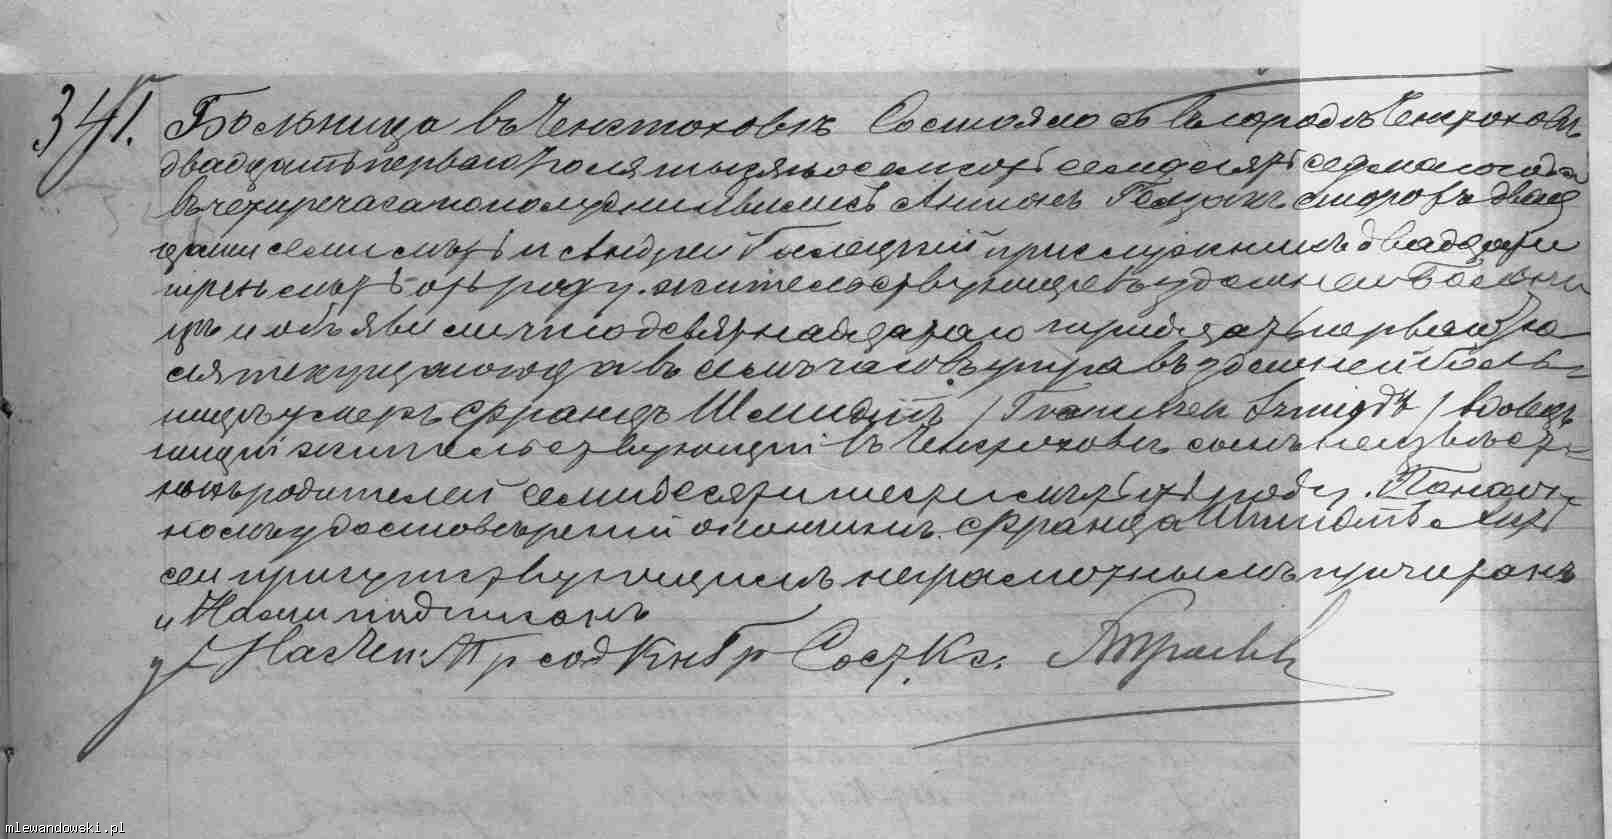 341.
Больница въ Ченстоховѣ Состоялось въ городѣ Ченстоховѣ
двадцать перваго Іюля тысяча восемсотъ семидесятъ седмаго года
въ четыре часа по полудни явились Антонъ сторожъ двад
цати семи лѣтъ и Андрей прислужникъ двадцати
лѣтъ отъ роду. жительствующіе въ здѣшней Больни
цѣ и объявили что девятнадцатаго тридцать перваго Ію
ля текущаго года въ семь часовъ утра въ здѣшней боль=
ницѣ умеръ Францъ Шмидтъ / Franciszek Szmidt / вдовецъ
нищій жительствующій въ Ченстоховѣ сынъ неизвѣст=
ныхъ родителей семидесяти шести лѣтъ отъ роду. По наоч
ному удостовѣреніи о кончинѣ Франца Шмидтъ Актъ
сей присутствующимъ неграмотнымъ прочитанъ
и Нами подписанъ
Сод Кн Гр Сост
mlewandowski.pl